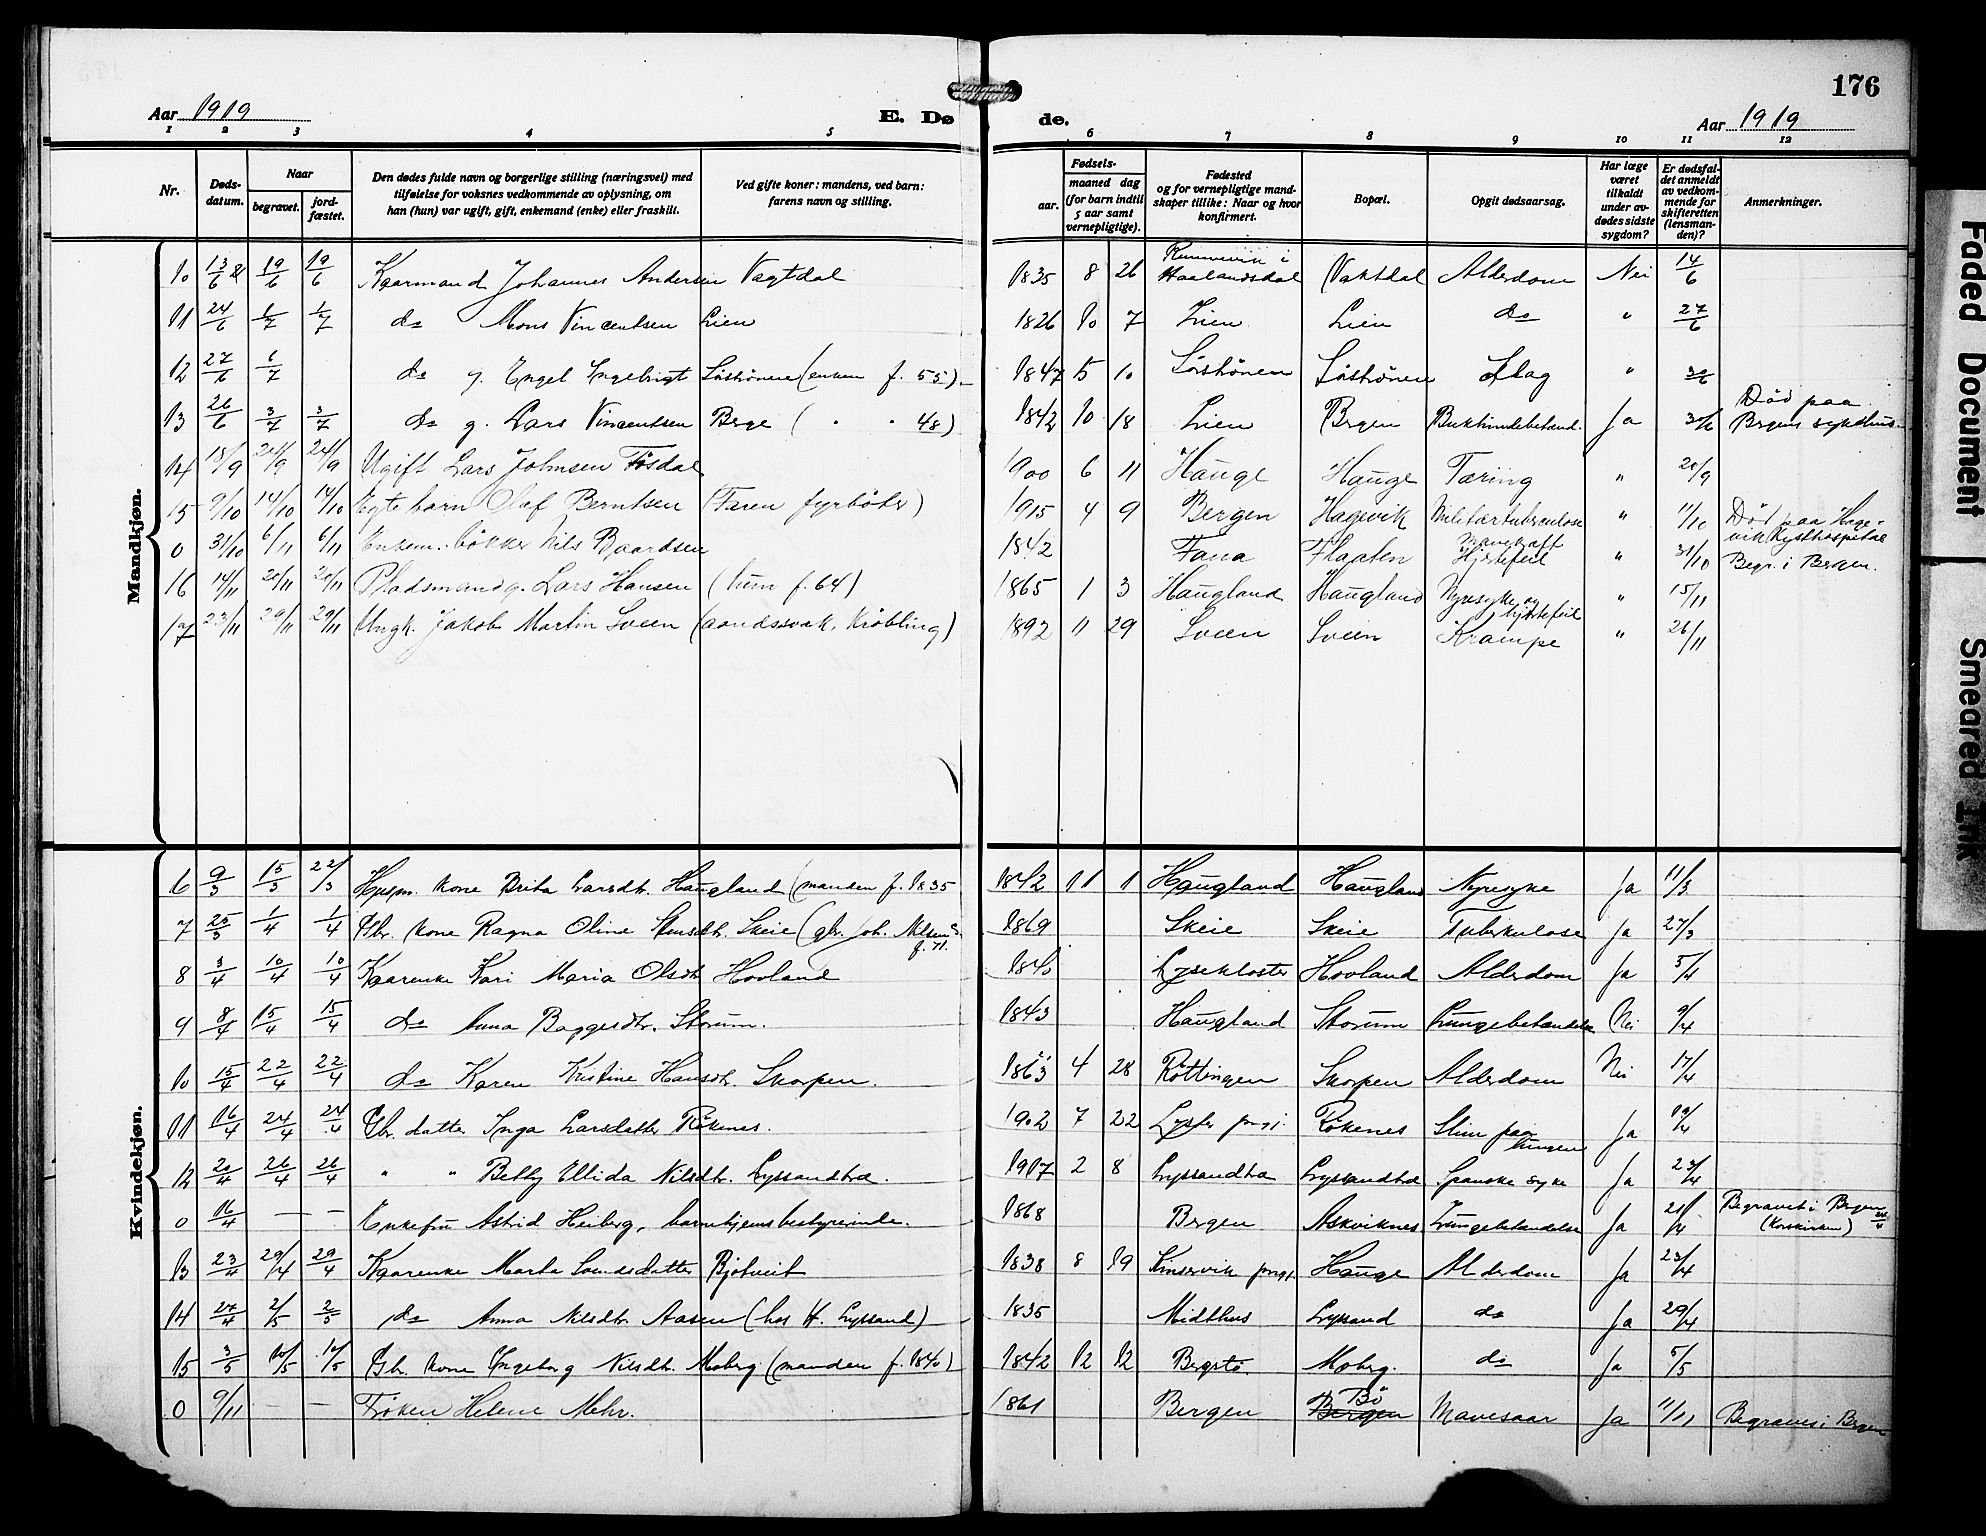 176
Aar 1919
E. Dø
de.
Aar 1919
1 2 3 4 5 6 7 8 9 10 11 12
Nr.
Døds-
datum.
Naar
begravet.
jord-
fæstet.
Den dødes fulde navn og borgerlige stilling (næringsvei) med
tilføielse for voksnes vedkommende av oplysning, om
han (hun) var ugift, gift, enkemand (enke) eller fraskilt.
Ved gifte koner: mandens, ved barn:
farens navn og stilling.
Fødsels-
aar.
maaned dag
(for barn indtil
5 aar samt
vernepligtige).
Fødested
og for vernepligtige mand-
skaper tillike: Naar og hvor
konfirmert.
Bopæl.
Opgit dødsaarsag.
Har læge
været
tilkaldt
under av-
dødes sidste
sygdom?
Er dødsfal-
det anmeldt
av vedkom-
mende for
skifteretten
(lensman-
den)?
Anmerkninger.
Mandkjøn.
10 13/6 19/6 19/6 Kaarmand Johannes Andersen Vagtdal 1835 8 26 Haalandsdal Vaktdal Alderdom Nei 14/6
11 24/6 1/7 1/7 do Mons Vincentsen Lien 1826 10 7 Lien Lien do " 27/6
12 27/6 6/7 do g. Engel Ingebrigt (enken f. 55) 1847 5 10 Slag " 30/6
13 26/6 3/7 3/7 do g. Lars Vincentsen Berge ( " " 48) 1842 10 18 Lien Bergen Bukhindebetænd. Ja 30/6 Død paa
Bergens sykehus.
14 15/9 24/9 24/9 Ugift Lars Johnsen Tøsdal 1900 6 11 Hauge Hauge Tæring " 20/9
15 9/10 14/10 14/10 Egte barn Olaf Berntsen (Faren fyrbøter) 1915 4 9 Bergen Hagevik Miliærtuberculose " 11/10 Død paa Hage-
vik Kysthospital
0 31/10 6/11 6/11 Enkem. bøkker Nils Baardsen 1842 Fana Flaaten Hjertefeil " 31/10 Begr. i Bergen.
16 14/11 20/11 20/11 Pladsmand g. Lars Hansen (hun f. 64) 1865 1 3 Haugland Haugland Nyresyke og
hjertefeil " 15/11
17 23/11 29/11 29/11 Ungk. Jakob Martin Sveen (aandssvak, Krøbling) 1892 11 29 Sveen Sveen Krampe " 26/11
Kvindekjøn.
6 9/3 15/3 22/3 Husm. kone Brita Larsdtr. Haugland (manden f. 1835 1842 11 1 Haugland Haugland Nyresyke Ja 11/3
7 25/3 1/4 1/4 Gbr. kone Ragna Oline Stensdtr. Skeie (gbr. Joh. Nilsen
f. 71. 1869 Skeie Skeie Tuberkulose Ja 27/3
8 3/4 10/4 10/4 Kaarenke Kari Maria Olsdtr Hovland 1840 Lysekloster Hovland Alderdom Ja 5/4
9 8/4 15/4 15/4 do Anna Baggesdtr. Storum. 1843 Haugland Storum Lungebetændelse Nei 9/4
10 15/4 22/4 22/4 do Karen Kristine Hansdtr. Skorpen. 1863 4 28 Røttingen Skorpen Alderdom Nei 17/4
11 16/4 24/4 24/4 Gbr. datter Inga Larsdatter Røkenes. 1902 7 22 Lyster prgj. Røkenes Slim paa
lungen Ja 19/4
12 20/4 26/4 26/4 " " Betty Ellida Nilsdtr. Lyssandtræ. 1917 2 8 Lyssandtræ Lyssandtræ Spanske syke Ja 23/4
0 16/4 — — Enkefru Astrid Heiberg, barnehjemsbestyrerinde. 1868 Bergen Askviknes Lungebetændelse Ja 21/4 Begravet i Bergen
(Korskirken)
13 23/4 29/4 29/4 Kaarenke Marta Samdsdatter Bjotveit 1838 8 19 Kinservik prgj. Hauge Alderdom Ja 23/4
14 27/4 2/5 2/5 do Anna Nilsdtr. Aasen (hos H. Lyssand) 1835 Midthus Lyssand do Ja 29/4
15 3/5 10/5 10/5 Gbr. kone Ingeborg Nilsdtr. Moberg (manden f. 1840) 1842 12 12 Bergstø Moberg. do Ja 5/5
0 9/11 — — Frøken Helene Mohr. 1861 Bergen Bergen Bø Mavesaar Ja 11/11 Begraves i Bergen
Faded Document
Smeared Ink